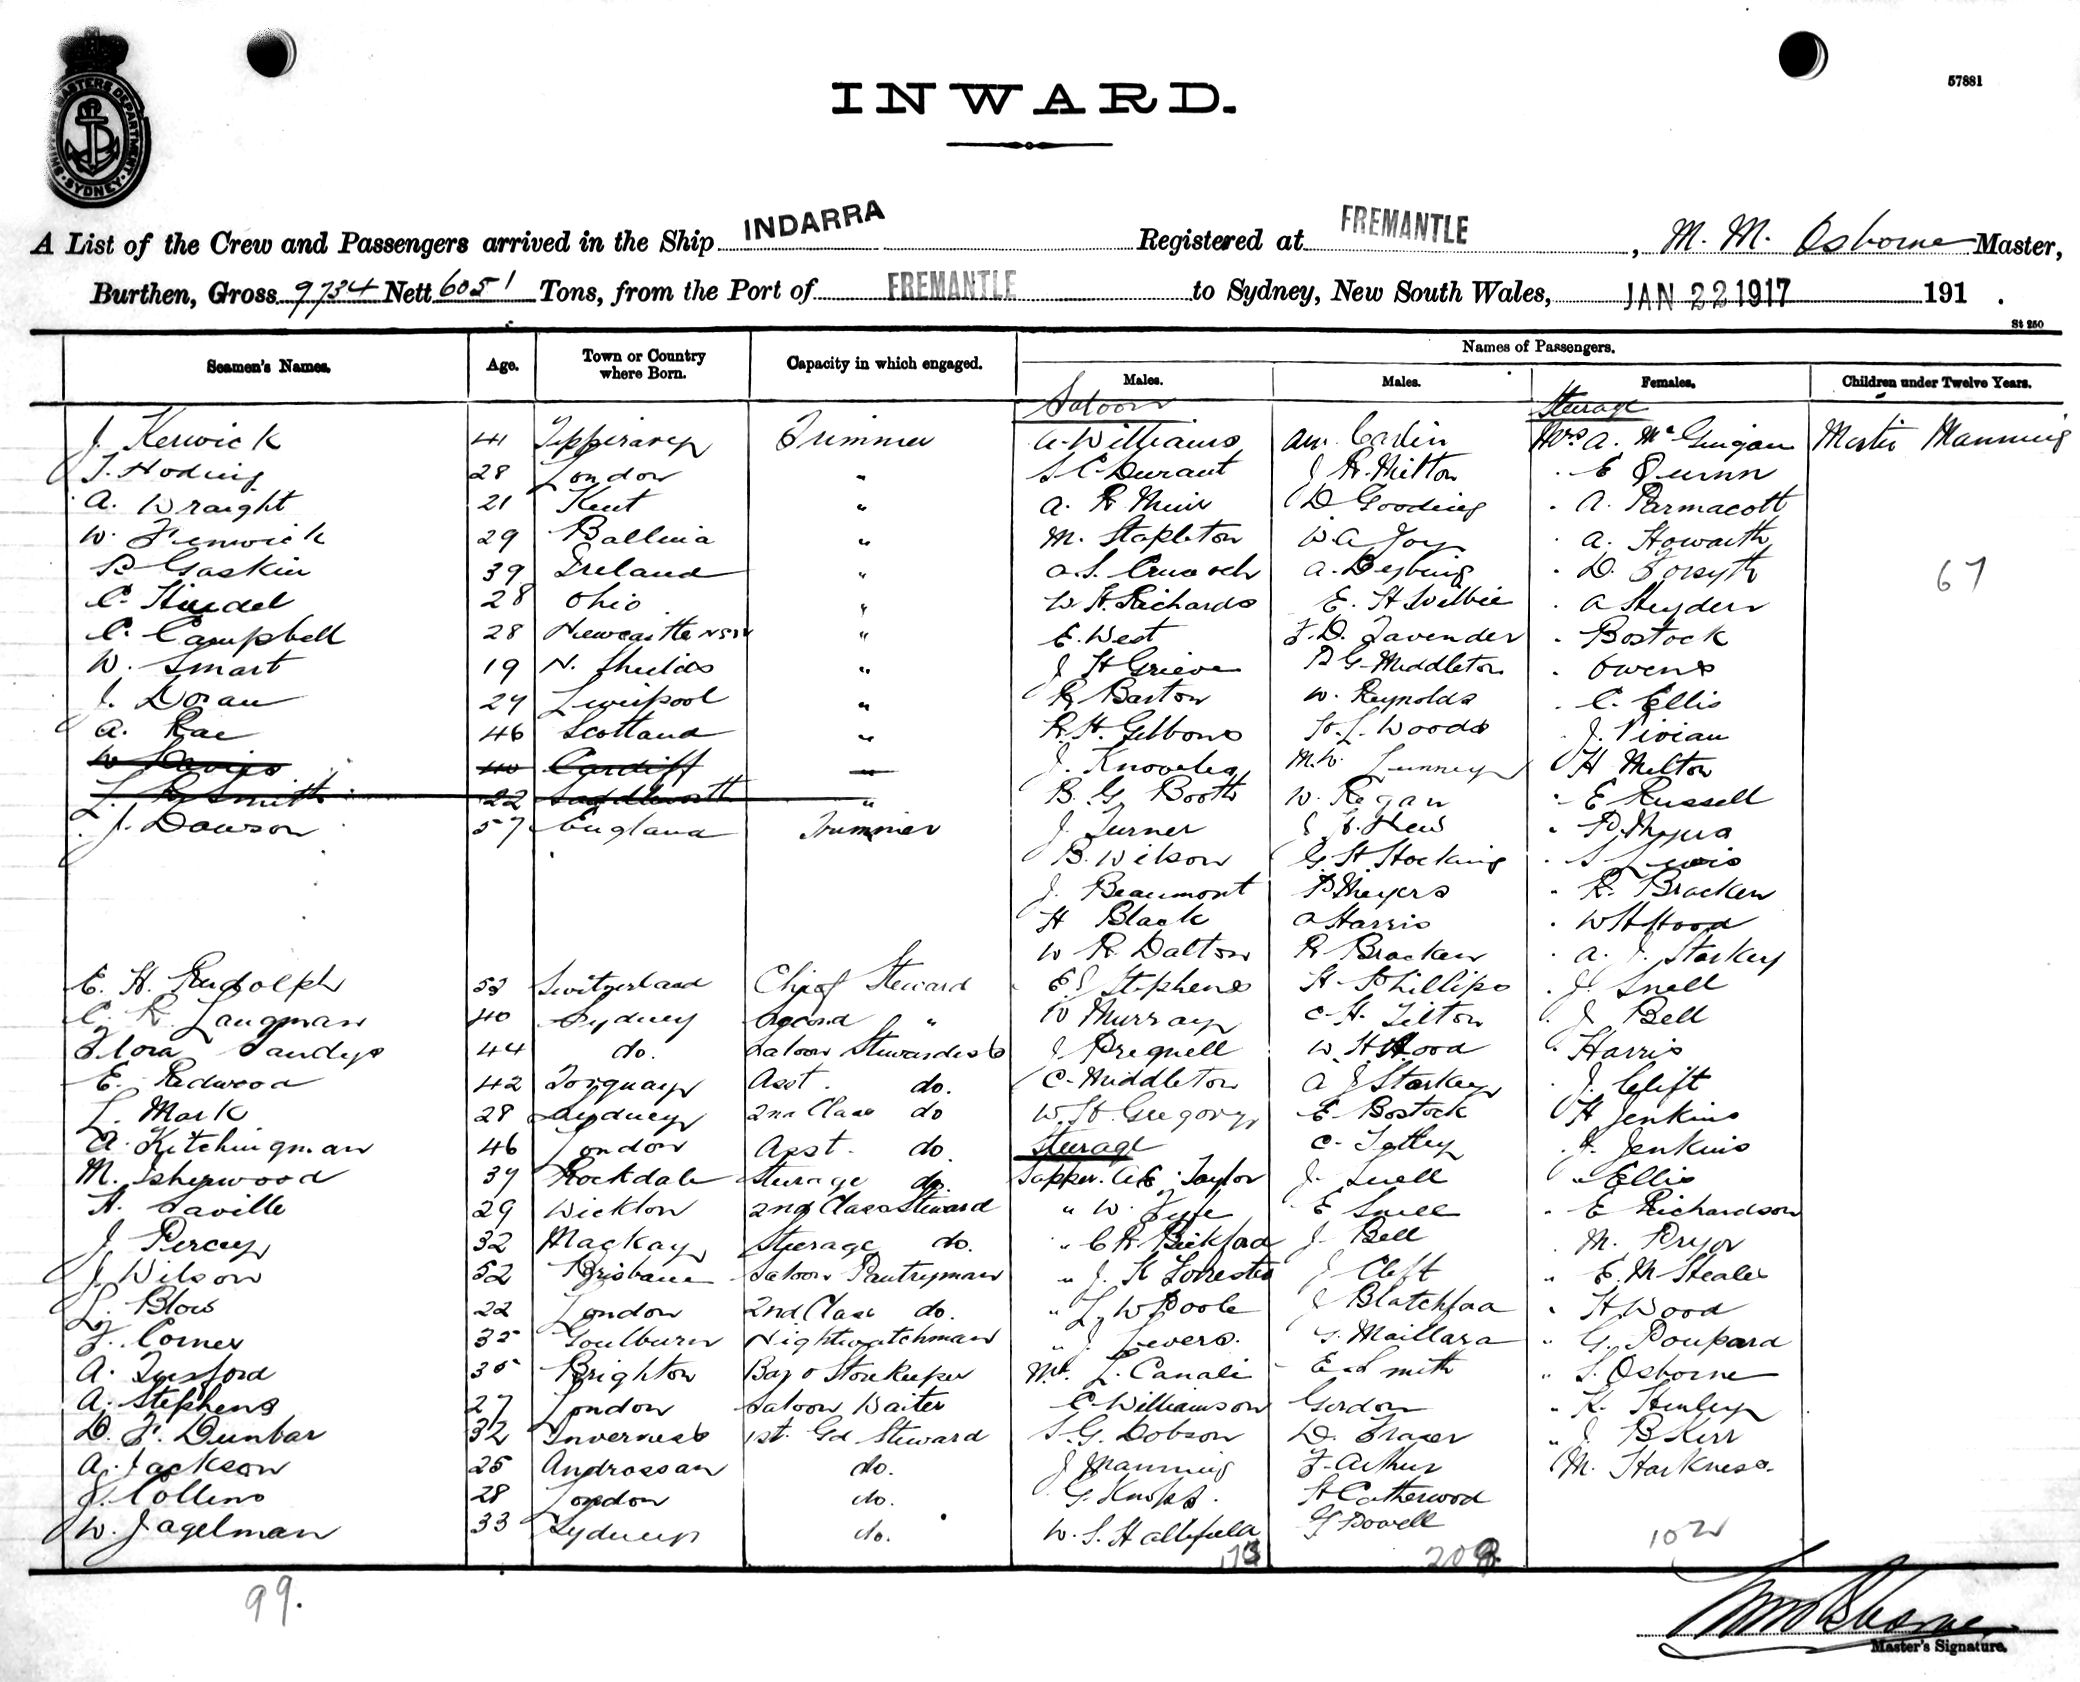 57881
INWARD.
SHIPPING MASTERS DEPARTMENT SYDNEY
A List of the Crew and Passengers arrived in the Ship INDARRA Registered at FREMANTLE, M. M. Osborne Master,
Burthen, Gross 9734 Nett 6051 Tons, from the Port of FREMANTLE to Sydney, New South Wales, JAN 22 1917 191 .
St 250
Names of Passengers.
Seamen's Names. Age. Town or Country where Born. Capacity in which engaged. Males. Males. Females. Children under Twelve Years.
Saloon Steerage
J. Kerwick 41 Tipperary Trimmer A. Williams Carlin Mrs A. McGuigan Manning
28 London " S C Durant J R. Hilton " E Quinn
A. Wraight 21 Kent " A. R Muir D Gooding " A. Parmacott
W. Fenwick 29 Ballina " M. Stapleton W. A Joy " A. Howarth
P Gaskin 39 Ireland " A. S. " D. Forsyth 67
C. 28 Ohio " W H. Richards E. H " A
C. Campbell 28 Newcastle NSW " E. West F. D. Lavender " Bostock
W. Smart 19 N. Shields " J H Grieve P G Middleton " Owens
J. Doran 27 Liverpool " R Barton W. Reynolds " C. Ellis
A. Rae 46 Scotland " R. H. Gibbons H. L. Woods " J. Vivian
W Davies 40 Cardiff " J. M. W. Lunney H Melton
L. R Smith 22 Saddleworth " B. G. Booth W. Regan " E Russell
J. Dawson 57 England Trimmer J Turner "
B. Wilson G. H Hocking " S Lewis
J. Beaumont P Meyers " R. Bracken
H Black A Harris " W H Hood
W R. Dalton R Bracken " A. J. Starkey
E. H. Rudolph 53 Switzerland Chief Steward E J Stephens H. Phillips " J. Snell
C. R. Langman 40 Sydney Second " W Murray C. H. Tilton " J Bell
Flora Sandys 44 do. Saloon Stewardess J Pregnell W. H Hood " Harris
E. Redwood 42 Torquay Asst. do. C. Middleton A J Starkey " J. Clift
L. Mark 28 Sydney 2nd Class do W. H. Gregory E Bostock H Jenkins
A. Kitchingman 46 London Asst. do. Steerage C. Tetley " Jenkins
M. Isherwood 37 Rockdale Steerage do. Sapper. A E. Taylor J. Snell " Ellis
A. Saville 29 Wickton 2nd Class Steward " W. Fyfe E Snell " E Richardson
J Percy 32 Mackay Steerage do. " C R Bickford J Bell " M. Pryor
J. Wilson 52 Brisbane Saloon Pantryman " J. K Forrester J Clift " E. M
L. Blow 22 London 2nd Class do. " L. W Poole J Blatchford " H Wood
F. Corner 35 Goulburn Nightwatchman " J. Levers. G. Maillard " G. Poupard
A. 35 Brighton Bag & Storekeeper Mr. L. Canali E. Smith " S. Osborne
A. Stephens 27 London Saloon Waiter C Williamson Gordon " K. Henley
D. F. Dunbar 32 Inverness 1st. Gd Steward S. G. Dobson D. Fraser " J. B Kerr
A. Jackson 25 Androssan do. J Manning F. Arthur " M. Harkness.
J. Collins 28 London do. G. Knopp. H Catherwood
W. Jagelman 33 Sydney do. W. S. Hallifield G Powell
102
99.
Master's Signature.